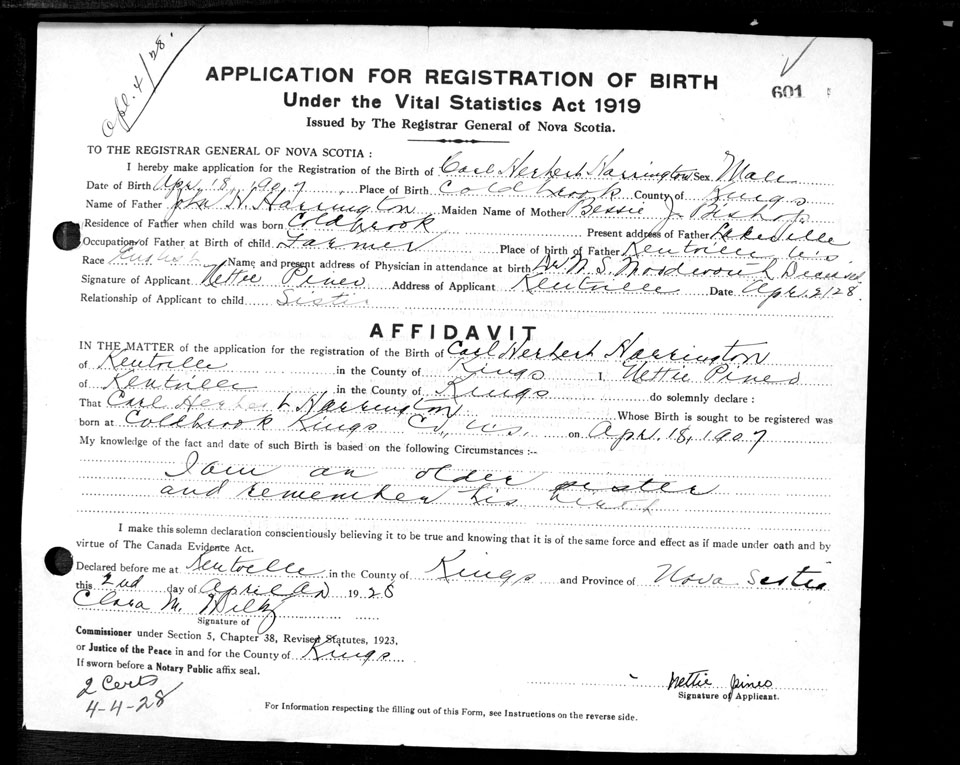 Apl. 4/28.
601
APPLICATION FOR REGISTRATION OF BIRTH
Under the Vital Statistics Act 1919
Issued by The Registrar General of Nova Scotia.
TO THE REGISTRAR GENERAL OF NOVA SCOTIA :
I hereby make application for the Registration of the Birth of Carl Herbert Harrington Sex Male
Date of Birth Apr. 18, 1907 Place of Birth Coldbrook County of Kings
Name of Father John H. Harrington Maiden Name of Mother Bessie J. Bishop
Residence of Father when child was born Coldbrook Present address of Father Lakeville
Occupation of Father at Birth of child Farmer Place of birth of Father Kentville N.S.
Race English Name and present address of Physician in attendance at birth Dr. Deceased
Signature of Applicant Nettie Pineo Address of Applicant Kentville Date Apr. 2/28.
Relationship of Applicant to child Sister
AFFIDAVIT
IN THE MATTER of the application for the registration of the Birth of Carl Herbert Harrington
of Kentville in the County of Kings I, Nettie Pineo
of Kentville in the County of Kings do solemnly declare :
That Carl Herbert Harrington Whose Birth is sought to be registered was
born at Coldbrook Kings Co., N.S. on Apr. 18, 1907
My knowledge of the fact and date of such Birth is based on the following Circumstances :--
I am an older sister
and remember his birth
I make this solemn declaration conscientiously believing it to be true and knowing that it is of the same force and effect as if made under oath and by
virtue of The Canada Evidence Act.
Declared before me at Kentville in the County of Kings and Province of Nova Scotia
this 2nd day of April AD 1928
Clara M.
Signature of
Commissioner under Section 5, Chapter 38, Revised Statutes, 1923,
or Justice of the Peace in and for the County of Kings
If sworn before a Notary Public affix seal.
Nettie Pineo
Signature of Applicant.
2 Certs
4-4-28
For Information respecting the filling out of this Form, see Instructions on the reverse side.